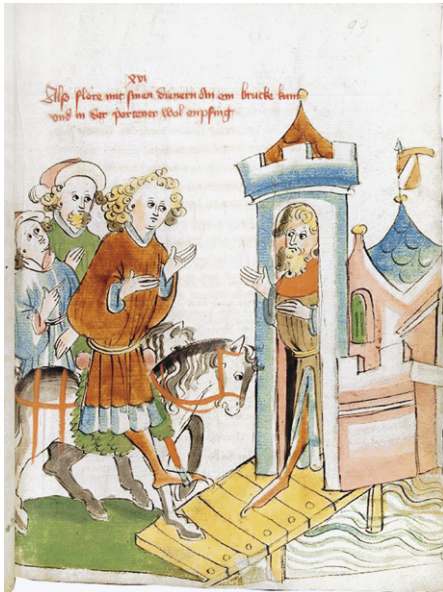 xvi
Alß flore mit sinen dienern an ein brucke kam
vnd in der portener wol enpfing